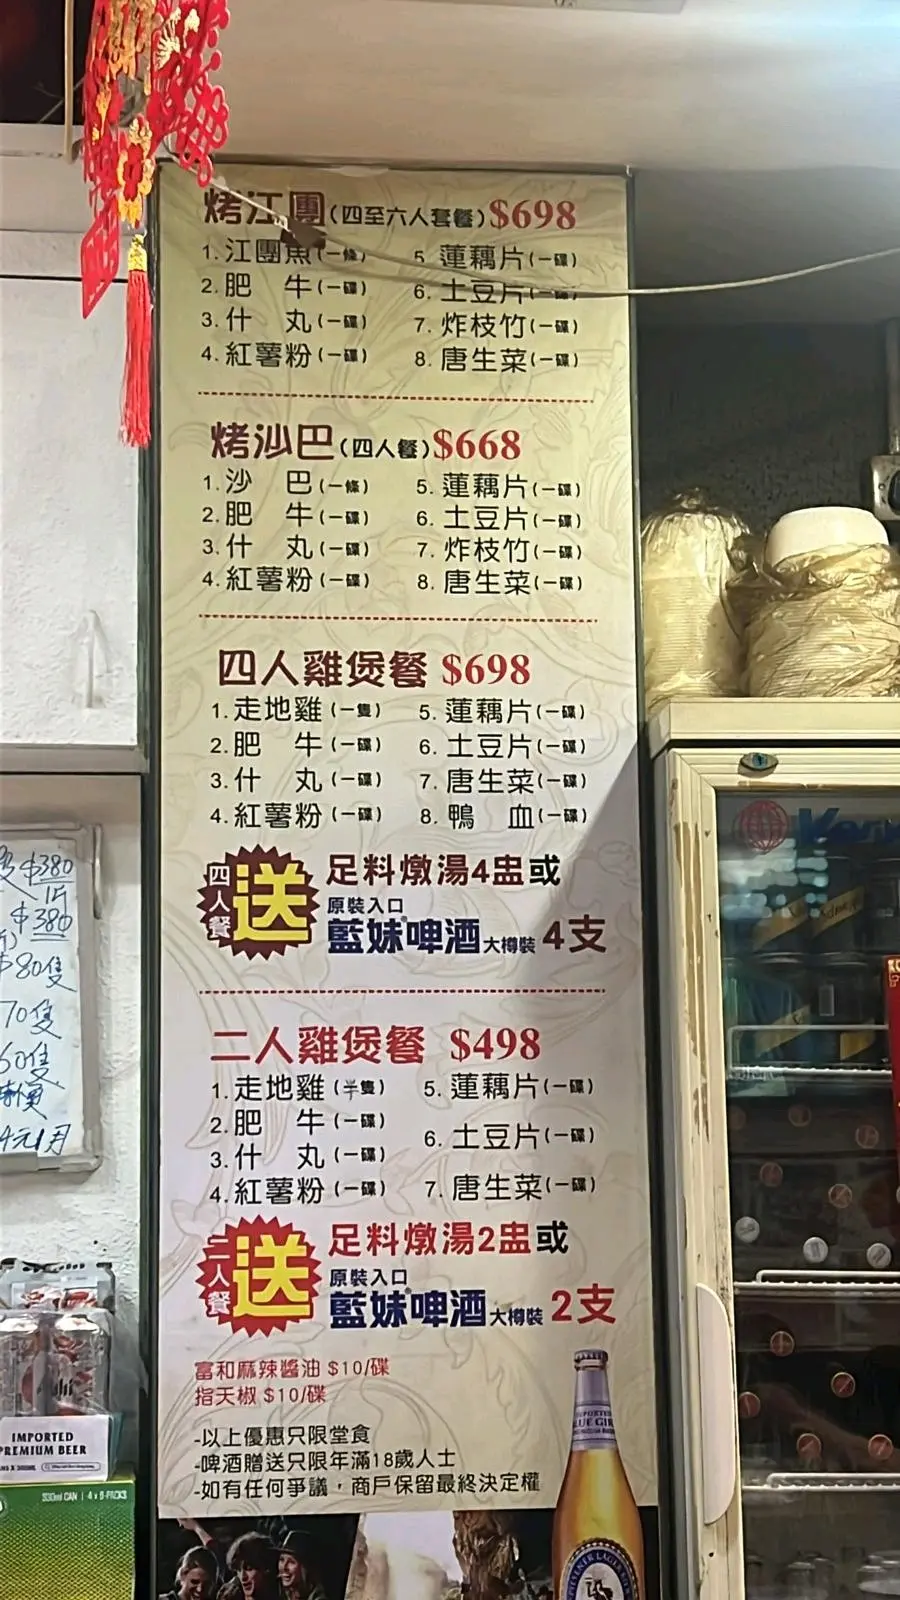 烤江團(四至六人套餐)$698
1. 江團魚(一條)
2. 肥 牛(一碟)
3. 什 丸(一碟)
4. 紅薯粉(一碟)
5. 蓮藕片(一碟)
6. 土豆片(一碟)
7. 炸枝竹(一碟)
8. 唐生菜(一碟)
烤沙巴(四人餐)$668
1. 沙 巴(一條)
2. 肥 牛(一碟)
3. 什 丸(一碟)
4. 紅薯粉(一碟)
5. 蓮藕片(一碟)
6. 土豆片(一碟)
7. 炸枝竹(一碟)
8. 唐生菜(一碟)
四人雞煲餐 $698
1. 走地雞(一隻)
2. 肥 牛(一碟)
3. 什 丸(一碟)
4. 紅薯粉(一碟)
5. 蓮藕片(一碟)
6. 土豆片(一碟)
7. 唐生菜(一碟)
8. 鴨 血(一碟)
四人餐 送 足料燉湯4盅或
原裝入口
藍妹啤酒 大樽裝 4支
二人雞煲餐 $498
1. 走地雞(半隻)
2. 肥 牛(一碟)
3. 什 丸(一碟)
4. 紅薯粉(一碟)
5. 蓮藕片(一碟)
6. 土豆片(一碟)
7. 唐生菜(一碟)
二人餐 送 足料燉湯2盅或
原裝入口
藍妹啤酒 大樽裝 2支
富和麻辣醬油 $10/碟
指天椒 $10/碟
-以上優惠只限堂食
-啤酒贈送只限年滿18歲人士
-如有任何爭議，商戶保留最終決定權
$380
1斤
$380
$80隻
70隻
60隻
IMPORTED
PREMIUM BEER
330ml CAN | 4 x 6-PACKS
PILSENER LAGER